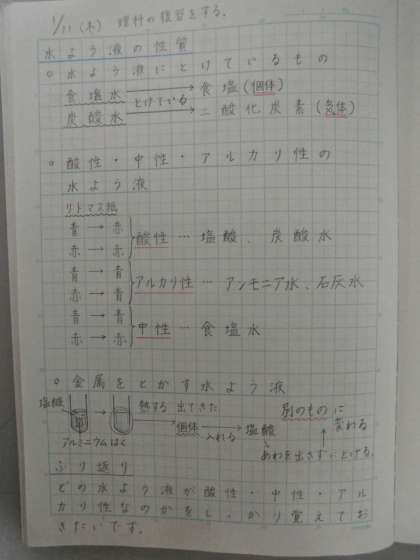 1/21(木) 理科の復習をする。
水よう液の性質
○水よう液にとけているもの
食塩水 → 食塩(個体)
とけている
炭酸水 → 二酸化炭素(気体)
○酸性・中性・アルカリ性の
水よう液
リトマス紙
青→赤
赤→赤
酸性…塩酸、炭酸水
青→青
赤→青
アルカリ性…アンモニア水、石灰水
青→青
赤→赤
中性…食塩水
○金属をとかす水よう液
塩酸 → 熱する 出てきた 個体 → 入れる 塩酸 別のものに変わる
アルミニウムはく
あわを出さずにとける。
ふり返り
どの水よう液が酸性・中性・アル
カリ性なのかをしっかり覚えてお
きたいです。